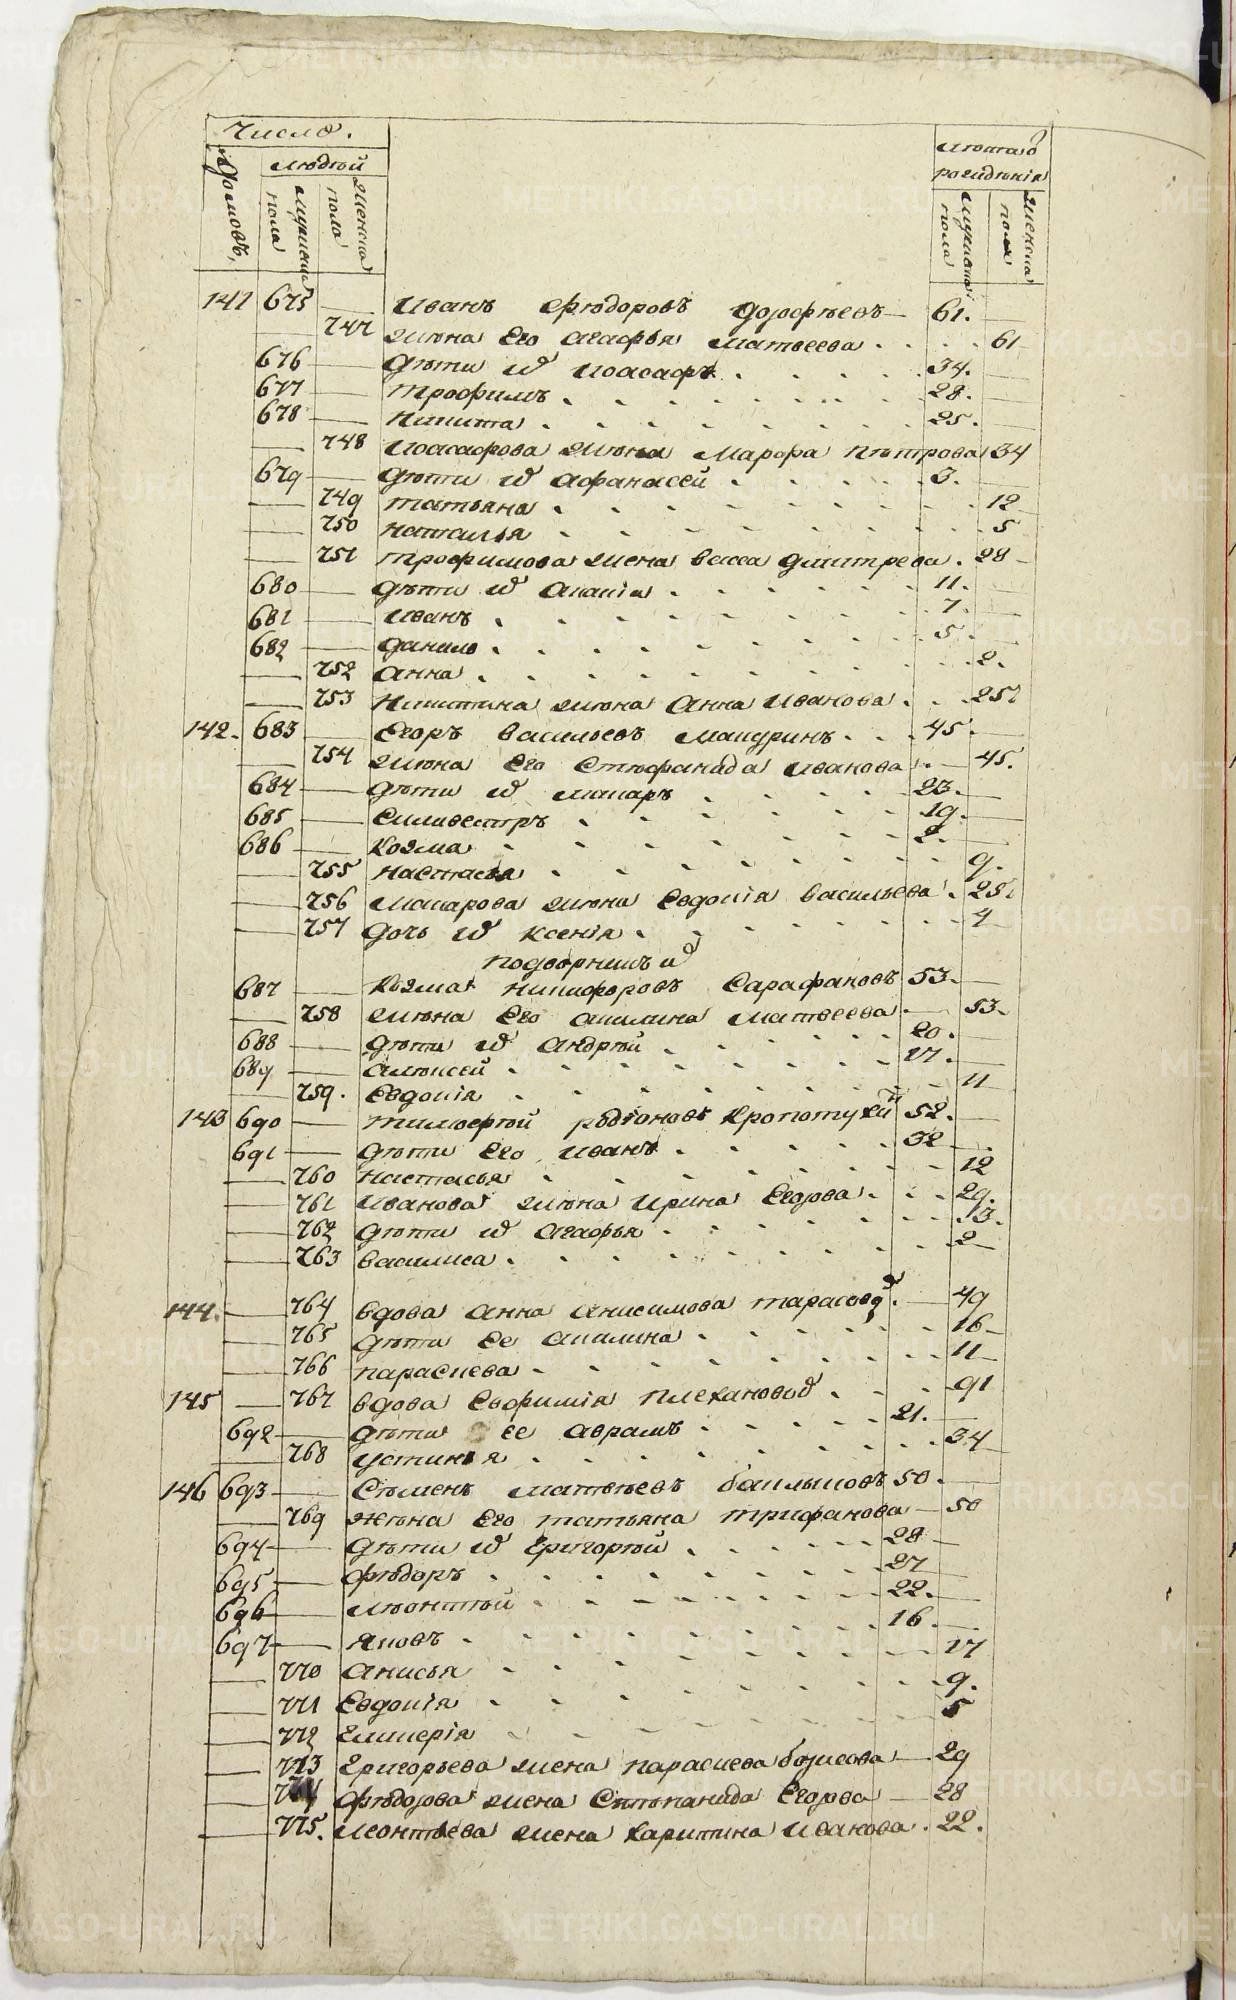 Число.
Домовъ,
людей
мужеска пола
женска пола
лѣта ѿ рождения
мужеска пола
женска пола
141 675 — Иванъ Ѳедоровъ Дорофеевъ — 61.
747 жена Его Агафья Матвеева . . . 61
676 — дѣти их Иоасафъ . . . . 34.
677 — Трофимъ . . . . 28.
678 — Никита . . . . 25.
— 748 Иоасафова жена Марфа Петрова 34
679 — дѣти их Афанасей . . . . 3.
— 749 Татьяна . . . . 12
— 750 Наталья . . . . 5
— 751 Трофимова жена Васса Дмитрева . 28
680 — дѣти их Анания . . . . 11.
681 — Иванъ . . . . 7.
682 — Данило . . . . 5.
— 752 Анна . . . . 2.
— 753 Никитина жена Анна Иванова . . . 25
142. 683 — Егоръ Васильевъ Мандринъ . . . 45.
— 754 жена Его Стефанида Иванова . — 45.
684 — дѣти их Макаръ . . . . 23.
685 — Силивестръ . . . . 19.
686 — Козма . . . . 2.
— 755 Настасья . . . . 9.
— 756 Макарова жена Евдокия Васильева . 25
— 757 дочь их Ксения . . . . 4
подворники
687 — Козма Никифоровъ Сарафановъ 53. —
— 758 жена Его Акилина Матвеева . — 53.
688 — дѣти их Андрей . . . . 20.
689 — Алексей . . . . 17.
759. Евдокия . . . . 11
143 690 — Тимофей Родионовъ Кропотухин 52.
691 — дѣти Его Иванъ . . . . 32
— 760 Настасья . . . . 12
— 761 Иванова жена Ирина Егорова . . . 29.
— 762 дѣти их Агафья . . . . 13.
— 763 Василиса . . . . 2
144. — 764 вдова Анна Анисимова Тарасова . — 49
— 765 дѣти Ее Акилина . . . . 16
— 766 Параскева . . . . 11
145 — 767 вдова Евфимия Плеханова . . . 91
692 — дѣти ее Аврамъ . . . . 21.
— 768 Устинья . . . . 34
146 693 — Семенъ Матвеевъ 50.
— 769 жена Его Татьяна Трифанова — 50
694 — дѣти их Григорей . . . . 28
695 — Ѳедоръ . . . . 27
696 — Леонтей . . . . 22.
697 — Яковъ . . . . 16.
— 770 Анисья . . . . 17
— 771 Евдокия . . . . 9.
— 772 Гликерия . . . . 5
— 773 Григорьева жена Параскева Борисова — 29
— 774 Ѳедорова жена Степанида Егорова — 28
— 775. Леонтьева жена Харитина Иванова . 22.
METRIKI.GASO-URAL.RU